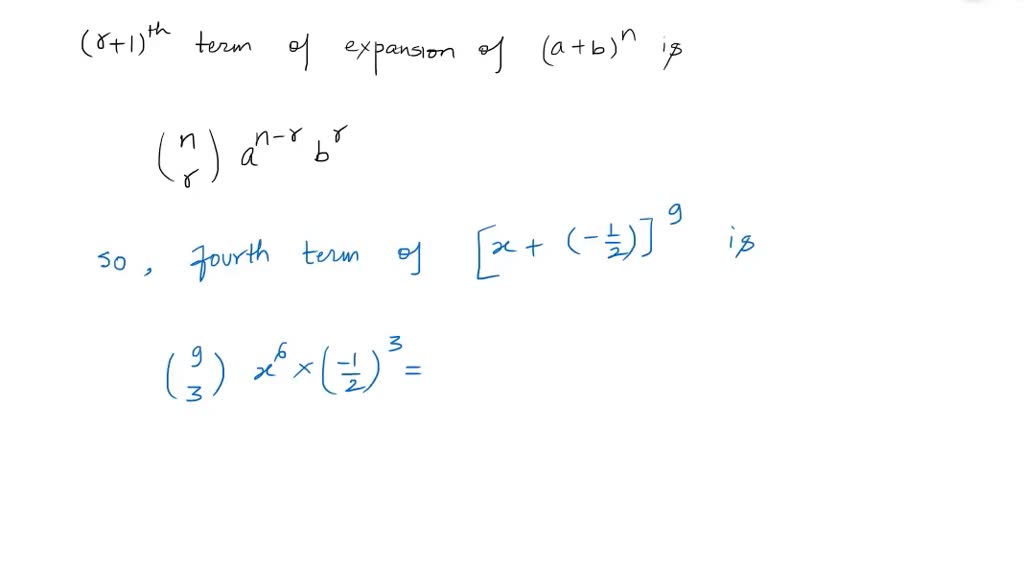 (r+1)^th term of expansion of (a+b)^n is
(n r) a^n-r b^r
so, fourth term of [x + (-1/2)]^9 is
(9 3) x^6 × (-1/2)^3 =